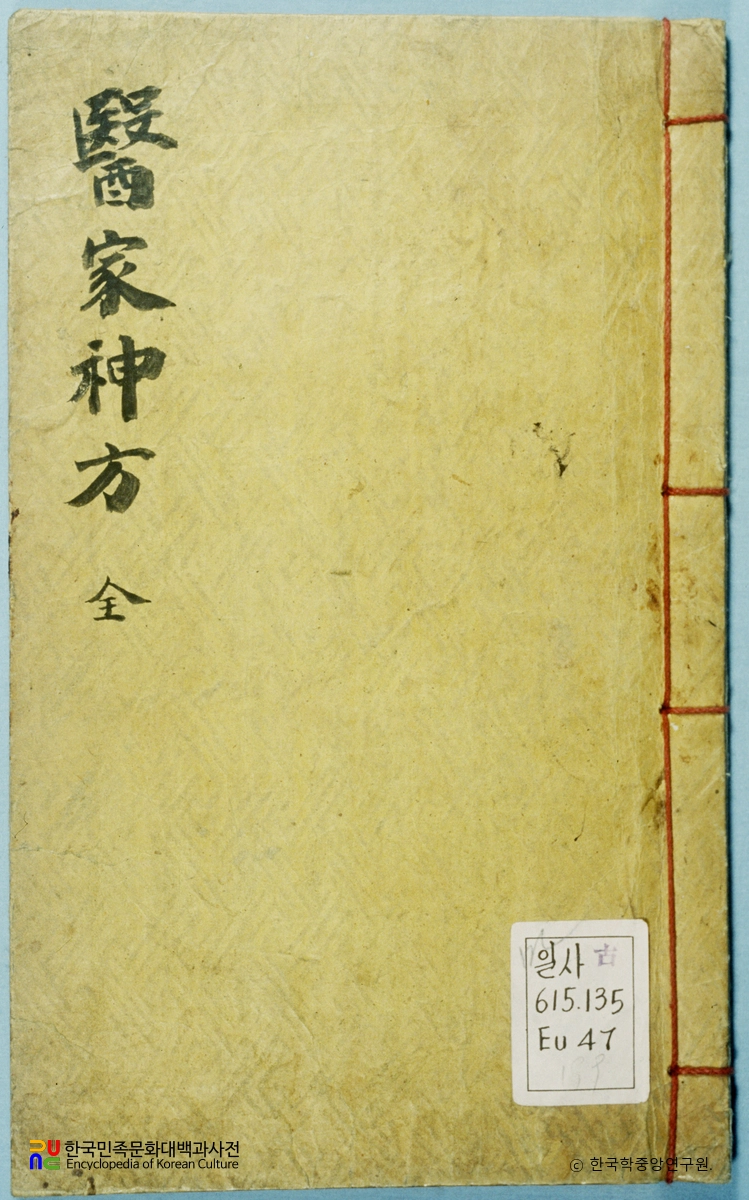 醫家神方 全
일사 古
615.135
Eu 47
한국민족문화대백과사전
Encyclopedia of Korean Culture
ⓒ 한국학중앙연구원.